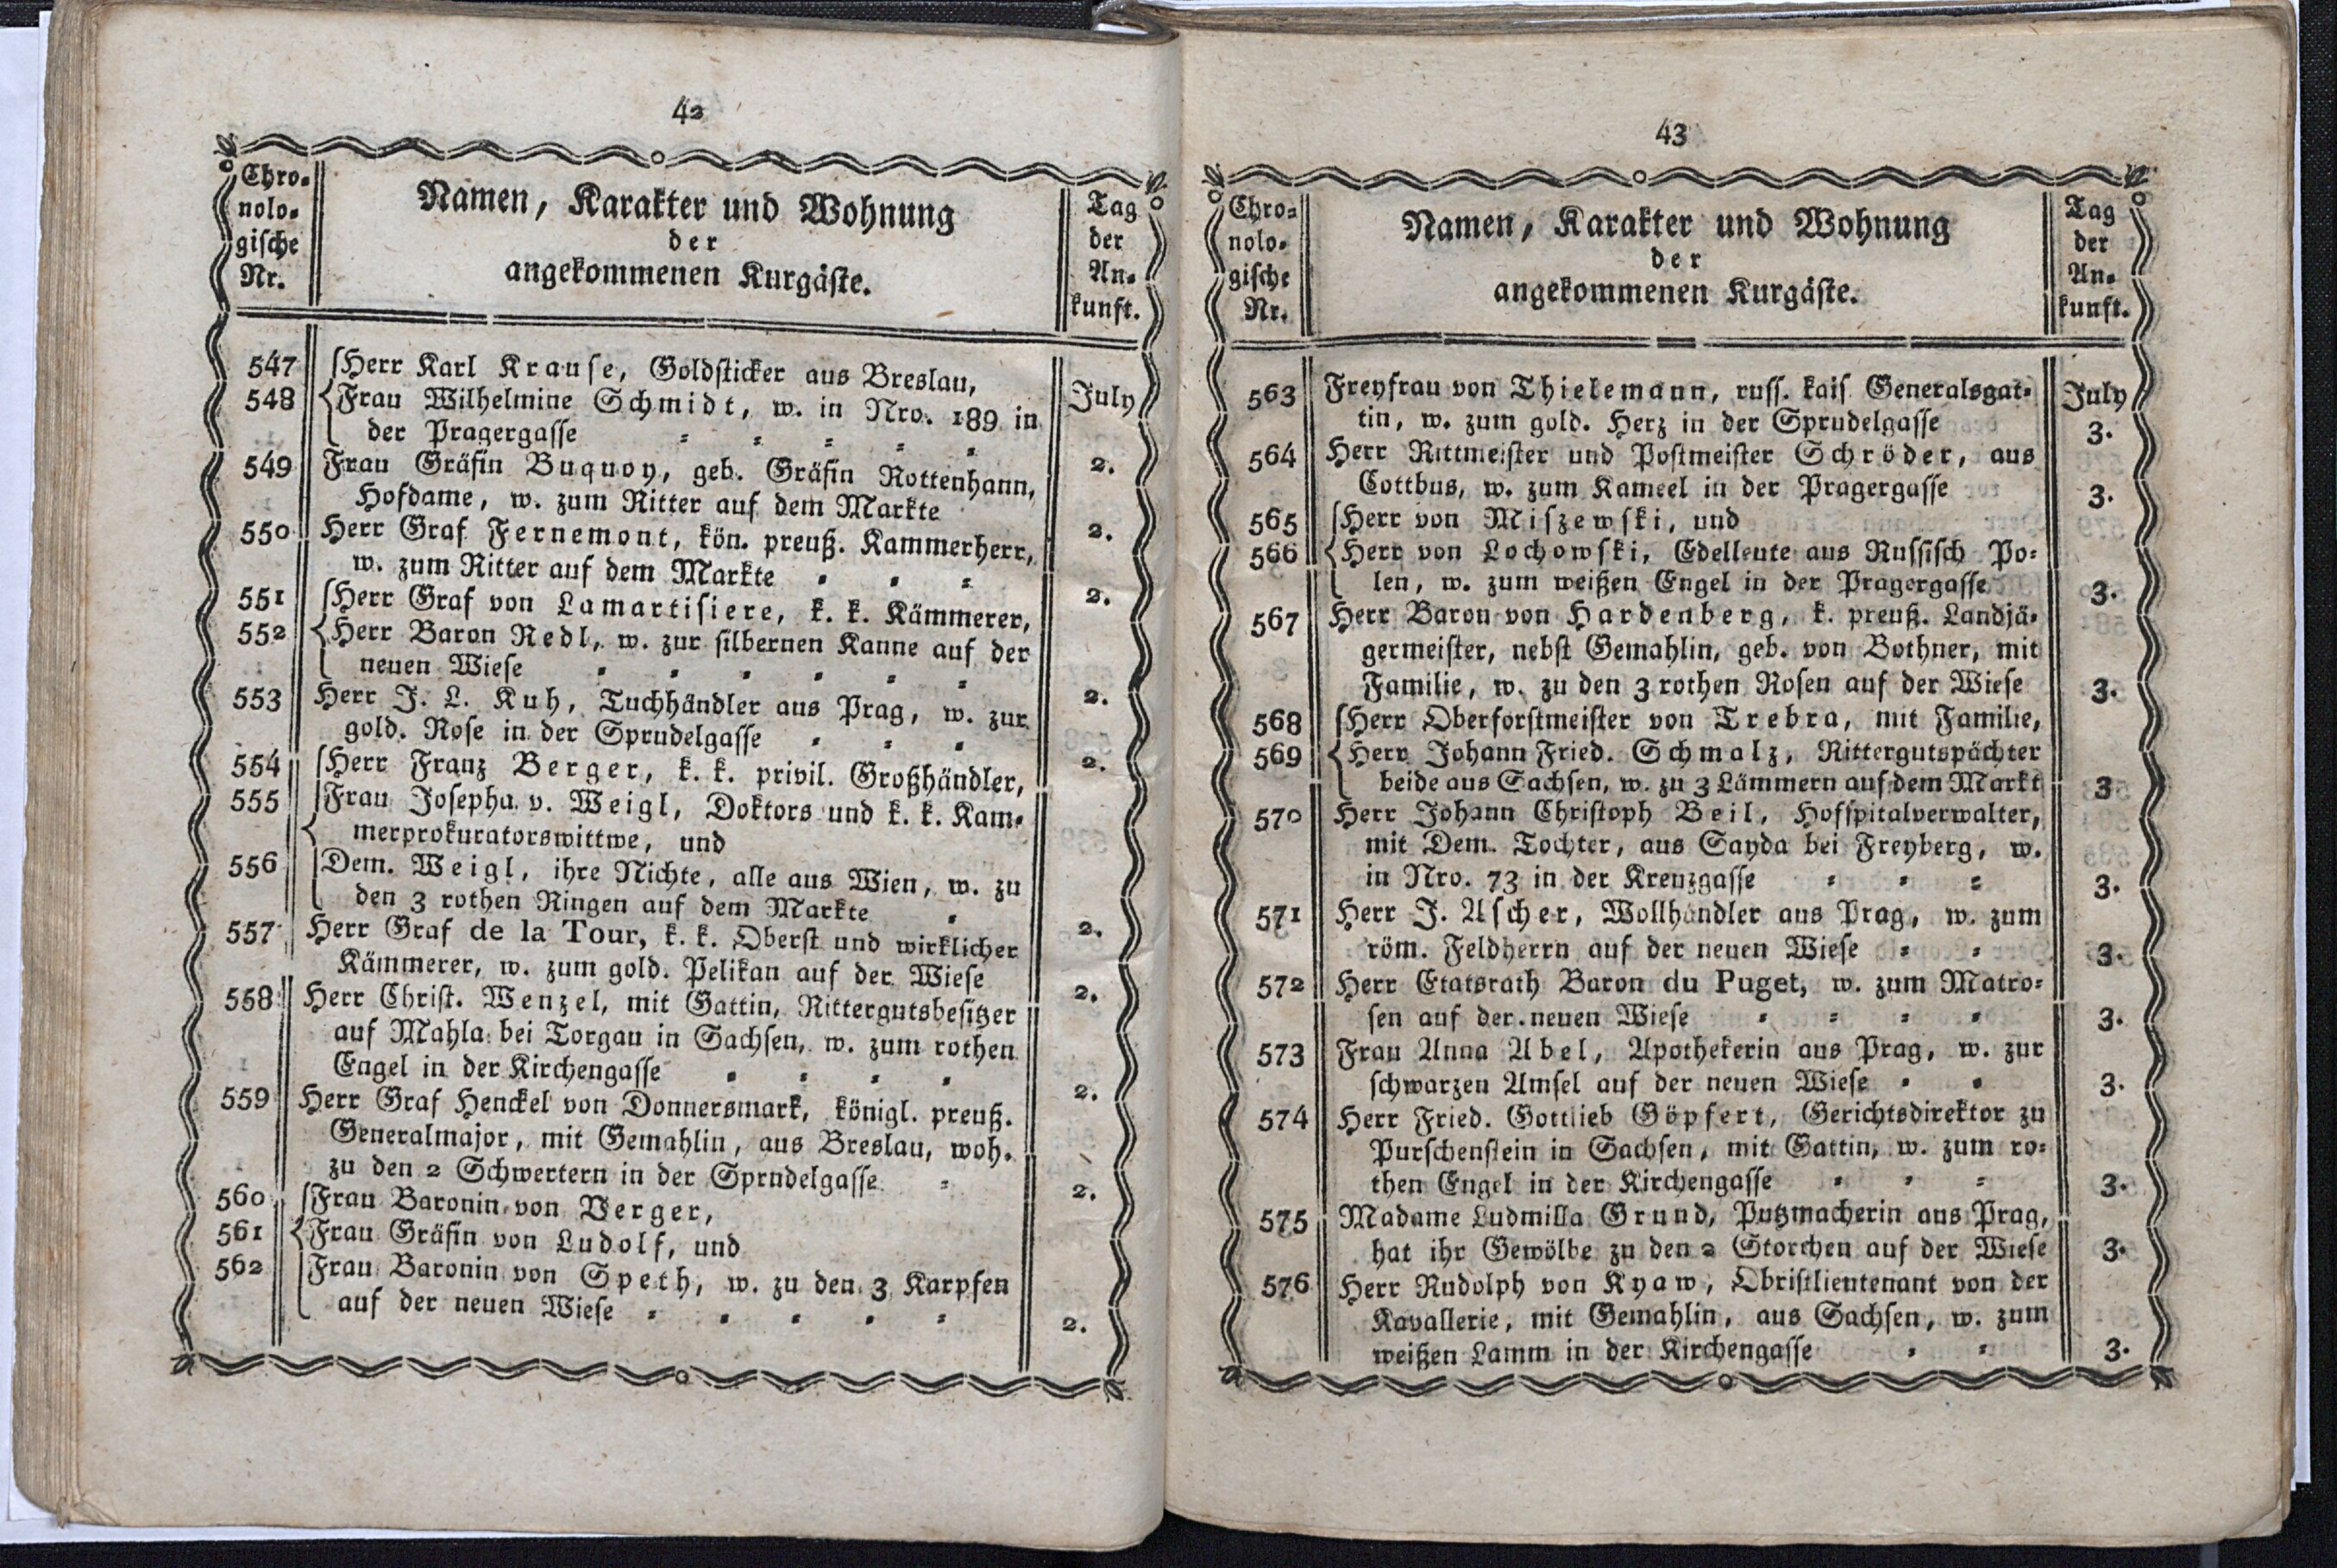 42
Chro-
nolo-
gische
Nr.
Namen, Karakter und Wohnung
der
angekommenen Kurgäste.
Tag
der
An-
kunft.
547 Herr Karl Krause, Goldsticker aus Breslau,
548 Frau Wilhelmine Schmidt, w. in Nro. 189 in July
der Pragergasse 2.
549 Frau Gräfin Buquoy, geb. Gräfin Rottenhann,
Hofdame, w. zum Ritter auf dem Markte 2.
550 Herr Graf Fernemont, kön. preuß. Kammerherr,
w. zum Ritter auf dem Markte 2.
551 Herr Graf von Lamartisiere, k. k. Kämmerer,
552 Herr Baron Redl, w. zur silbernen Kanne auf der
neuen Wiese 2.
553 Herr J. L. Kuh, Tuchhändler aus Prag, w. zur
gold. Rose in der Sprudelgasse 2.
554 Herr Franz Berger, k. k. privil. Großhändler,
555 Frau Josepha v. Weigl, Doktors und k. k. Kam-
merprokuratorswittwe, und
556 Dem. Weigl, ihre Nichte, alle aus Wien, w. zu
den 3 rothen Ringen auf dem Markte 2.
557 Herr Graf de la Tour, k. k. Oberst und wirklicher
Kämmerer, w. zum gold. Pelikan auf der Wiese 2.
558 Herr Christ. Wenzel, mit Gattin, Rittergutsbesitzer
auf Mahla bei Torgau in Sachsen, w. zum rothen
Engel in der Kirchengasse 2.
559 Herr Graf Henckel von Donnersmark, königl. preuß.
Generalmajor, mit Gemahlin, aus Breslau, woh.
zu den 2 Schwertern in der Sprndelgasse 2.
560 Frau Baronin von Verger,
561 Frau Gräfin von Ludolf, und
562 Frau Baronin von Speth, w. zu den 3 Karpfen
auf der neuen Wiese 2.
43
Chro-
nolo-
gische
Nr.
Namen, Karakter und Wohnung
der
angekommenen Kurgäste.
Tag
der
An-
kunft.
563 Freyfrau von Thielemann, russ. kais Generalsgat- July
tin, w. zum gold. Herz in der Sprudelgasse 3.
564 Herr Rittmeister und Postmeister Schröder, aus
Cottbus, w. zum Kameel in der Pragergasse 3.
565 Herr von Miszewski, und
566 Herr von Lochowski, Edelleute aus Russisch Po-
len, w. zum weißen Engel in der Pragergasse 3.
567 Herr Baron von Hardenberg, k. preuß. Landjä-
germeister, nebst Gemahlin, geb. von Bothner, mit
Familie, w. zu den 3 rothen Rosen auf der Wiese 3.
568 Herr Oberforstmeister von Trebra, mit Familie,
569 Herr Johann Fried. Schmalz, Rittergutspächter
beide aus Sachsen, w. zu 3 Lämmern auf dem Markt 3
570 Herr Johann Christoph Beil, Hofspitalverwalter,
mit Dem. Tochter, aus Sayda bei Freyberg, w.
in Nro. 73 in der Kreuzgasse 3.
571 Herr J. Ascher, Wollhändler aus Prag, w. zum
röm. Feldherrn auf der neuen Wiese 3.
572 Herr Etatsrath Baron du Puget, w. zum Matro-
sen auf der neuen Wiese 3.
573 Frau Anna Abel, Apothekerin aus Prag, w. zur
schwarzen Amsel auf der neuen Wiese 3.
574 Herr Fried. Gottlieb Göpfert, Gerichtsdirektor zu
Purschenstein in Sachsen, mit Gattin, w. zum ro-
then Engel in der Kirchengasse 3.
575 Madame Ludmilla Grund, Putzmacherin aus Prag,
hat ihr Gewölbe zu den 2 Storchen auf der Wiese 3.
576 Herr Rudolph von Kyaw, Obristlientenant von der
Kavallerie, mit Gemahlin, aus Sachsen, w. zum
weißen Lamm in der Kirchengasse 3.